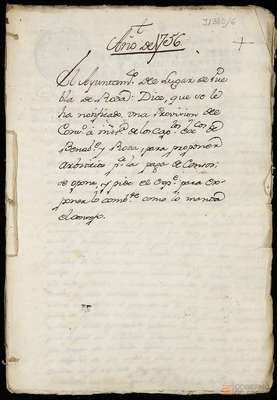 J/380/6
Año de 1756.
El Ayuntam.to del Lugar de Pue-
bla de Roda: Dice, que se le
ha notificado una Provision de
Conc.a à inst.a de los Cap.s
Benab.e y Roda, para proponer
Arbitrios p.a la paga de Censos:
se opone, y pide el Exp.te para ex-
poner lo comb.te como lo manda
el consejo.
GOBIERNO